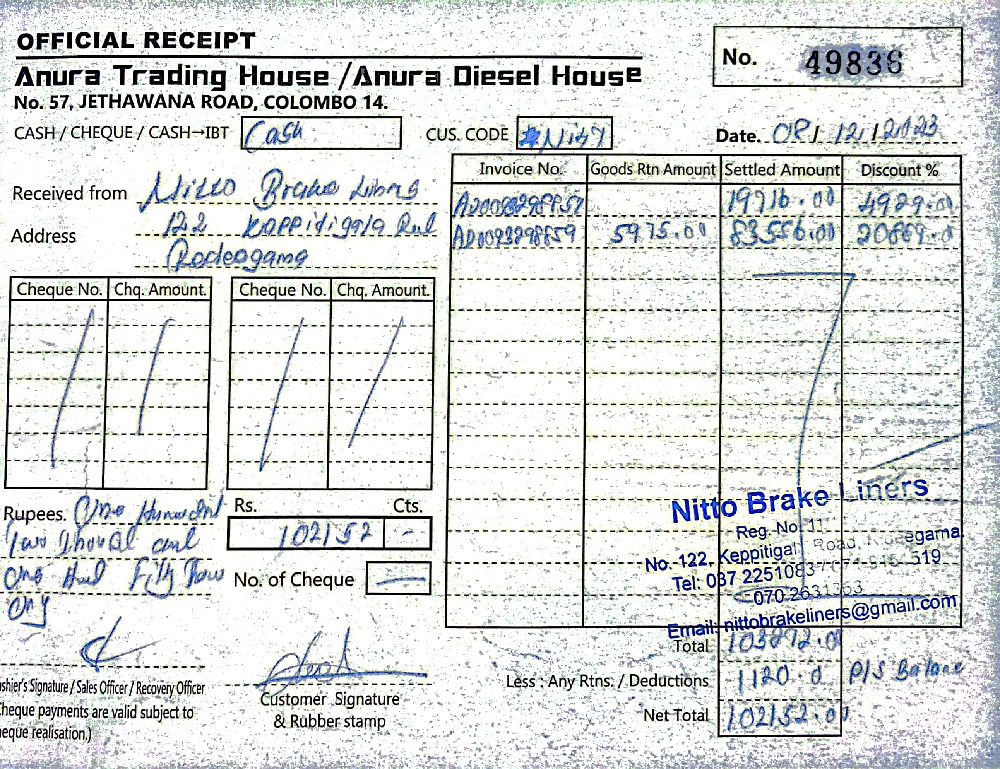 OFFICIAL RECEIPT
No. 49836
Anura Trading House / Anura Diesel House
No. 57, JETHAWANA ROAD, COLOMBO 14.
CASH / CHEQUE / CASH→IBT Cash
CUS. CODE
Date. 08/12/2023
Received from Nitto Brake
Address 122
Invoice No. Goods Rtn Amount Settled Amount Discount %
19716.00 4929.00
5975.00 83556.00 20889.0
Cheque No. Chq. Amount. Cheque No. Chq. Amount.
Rupees. One
Two and
One Fifty
Rs. Cts.
102152 -
No. of Cheque —
Nitto Brake Liners
Reg. No
No. 122, Road,
Tel: 037 2251083 519
070 2631363
Email: nittobrakeliners@gmail.com
Total
Less : Any Rtns. / Deductions 1120.0 P/S Balance
Net Total 102152.00
shier's Signature / Sales Officer / Recovery Officer
heque payments are valid subject to
eque realisation.)
Customer Signature
& Rubber stamp